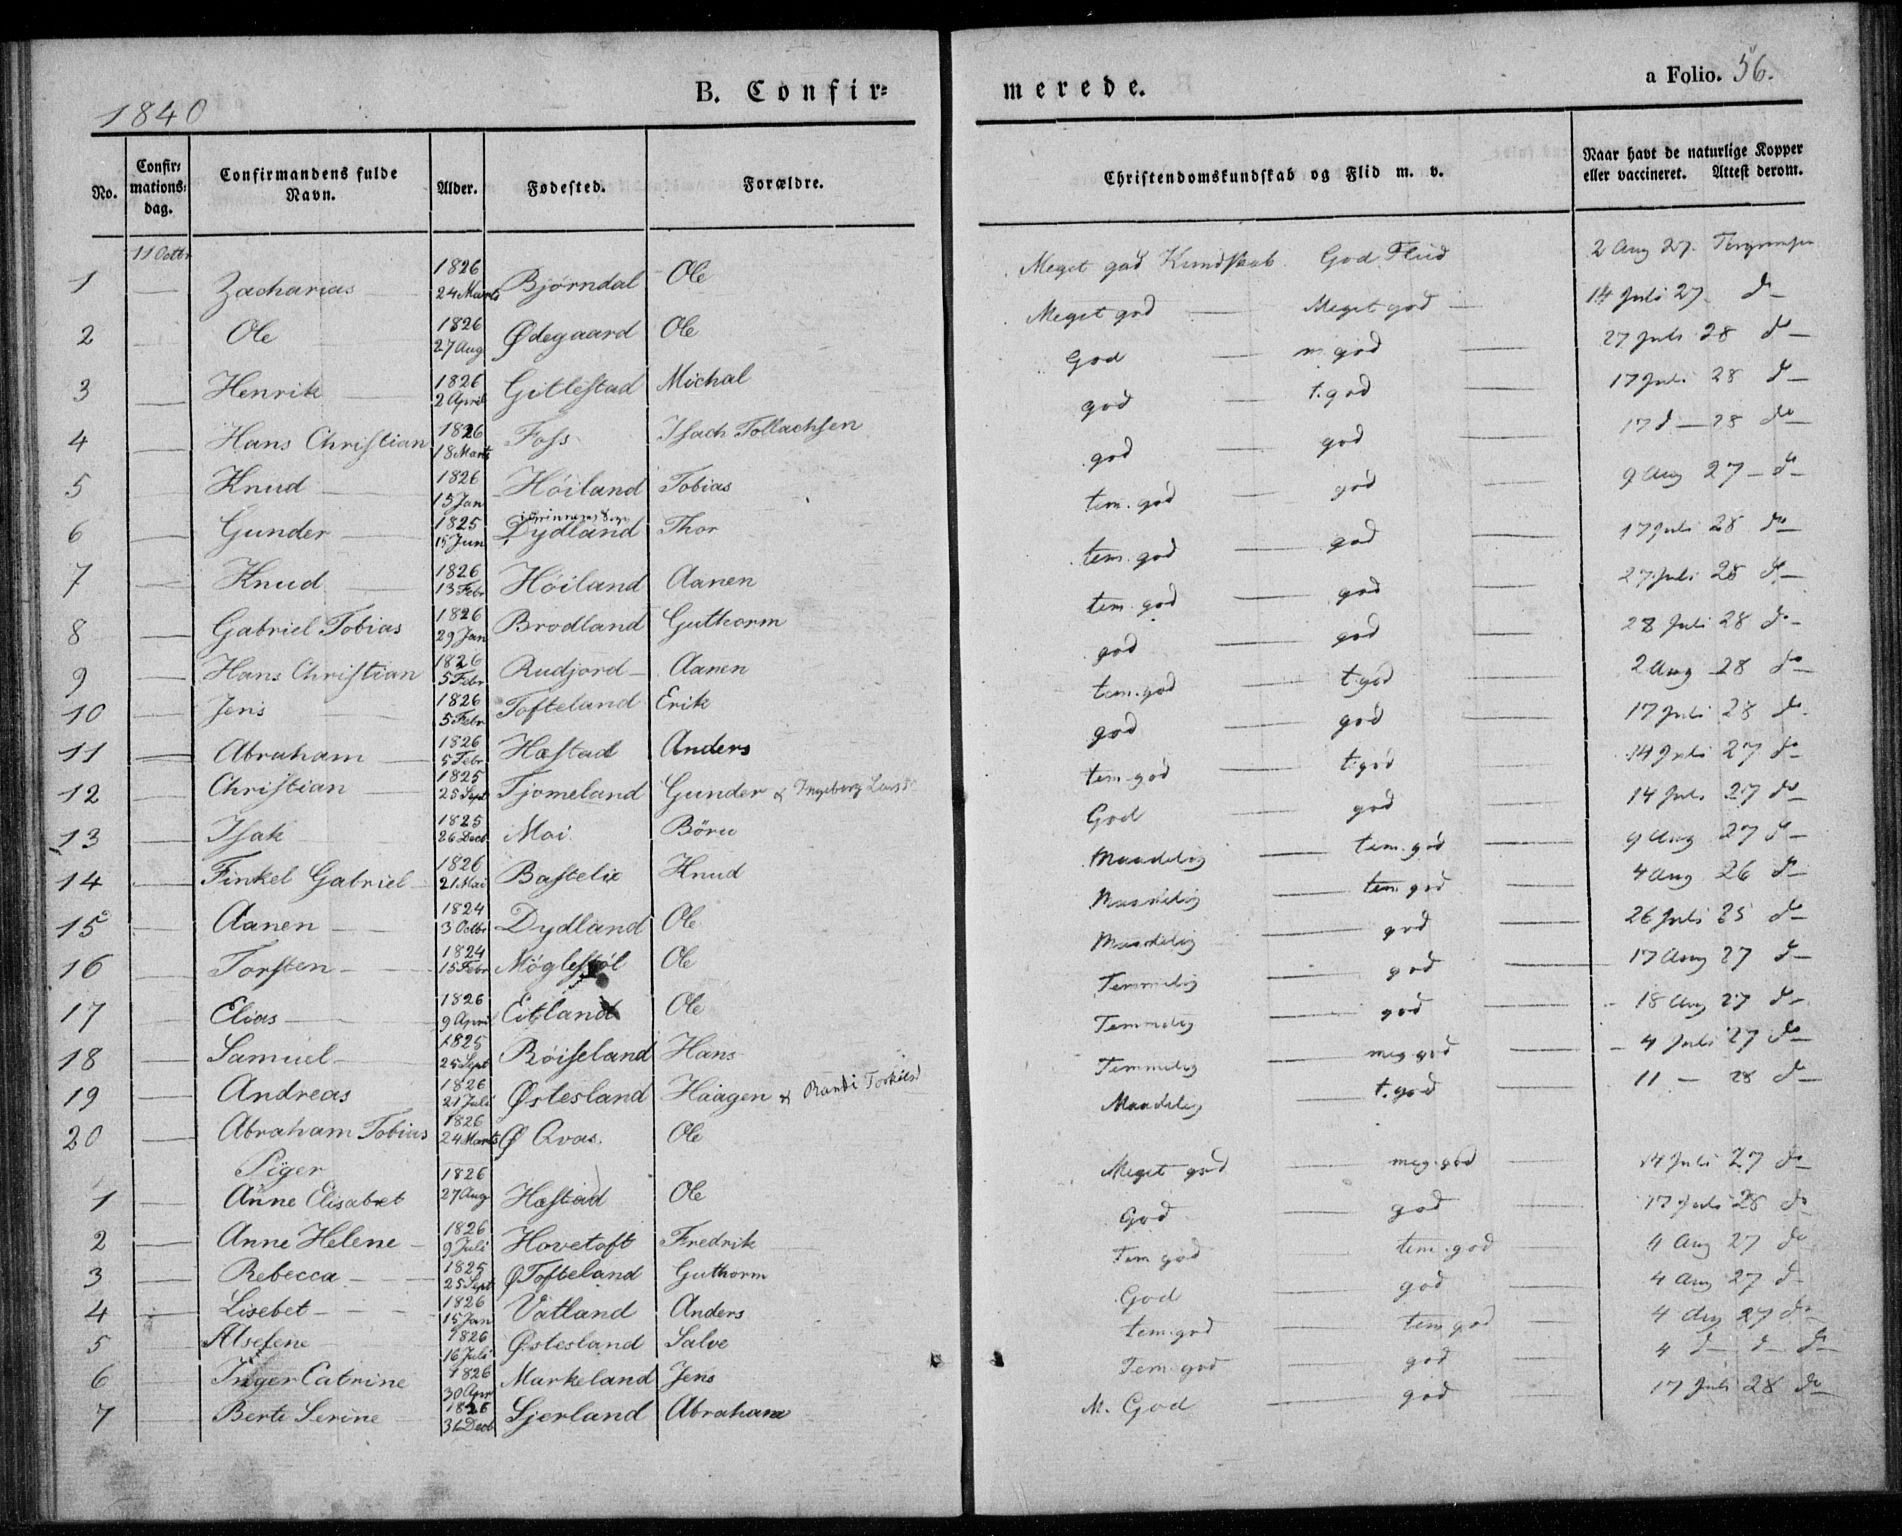 1840
B. Confir=
merede.
a Folio. 56.
No. Confirmations=dag. Confirmandens fulde Navn. Alder. Fødested. Forældre. Christendomskundskab og Flid m. v. Naar havt de naturlige Kopper eller vaccineret. Attest derom.
11 Octbr
1 Zacharias 1826 24 Marts Bjørndal Ole Meget god Kundskab God Fliid 2 Aug 27.
2 Ole 1826 27 Aug Ødegaard Ole Meget god Meget god 14 Juli 27 do
3 Henrik 1826 2 April Gitlestad Michal God m. god 27 Juli 28 do
4 Hans Christian 1826 18 Marts Foss Isach Tollachsen god t. god 17 Juli 28 do
5 Knud 1826 15 Jan Höiland Tobias god god 17 d 28 do
6 Gunder 1825 15 Jun Dydland Thor tem. god god 9 Aug 27 do
7 Knud 1826 13 Febr Höiland Aanen tem. god god 17 Juli 28 do
8 Gabriel Tobias 1826 29 Jan Brodland Guthorm tem. god god 27 Juli 28 do
9 Hans Christian 1826 5 Febr Rudjord Aanen god god 28 Juli 28 do
10 Jens 1826 5 Febr Tofteland Erik tem. god t. god 2 Aug 28 do
11 Abraham 1826 5 Febr Hæstad Anders god god 17 Juli 28 do
12 Christian 1825 25 Sept Tjomeland Gunder & Ingeborg tem. god t. god 14 Juli 27 do
13 Isak 1825 26 Decb Moi Böru God god 14 Juli 27 do
14 Finkel Gabriel 1826 21 Mai Bastelie Knud Maadelig tem. god 9 Aug 27 do
15 Aanen 1824 3 Octbr Dydland Ole Maadelig tem god 4 Aug 26 do
16 Torsten 1824 15 Febr Möglestöl Ole Maadelig god 26 Juli 25 do
17 Elias 1826 9 April Eitland Ole Temmelig god 17 Aug 27 do
18 Samuel 1825 25 Sept Röiseland Hans Temmelig god 18 Aug 27 do
19 Andreas 1826 21 Juli Østesland Haagen & Randi Torkilsd Temmelig meg. god 4 Juli 27 do
20 Abraham Tobias 1826 24 Marts Ø Qvas. Ole Maadelig t. god 11 — 28 do
Piger
1 Anne Elisabet 1826 27 Aug Hæstad Ole Meget god meg. god 14 Juli 27 do
2 Anne Helene 1826 9 Juli Hovetoft Fredrik God god 17 Juli 28 do
3 Rebecca 1825 25 Sept Ø Tofteland Guthorm Tem god tem. god 4 Aug 27 do
4 Lisebet 1826 15 Jan Vatland Anders God god 4 Aug 27 do
5 Alsefene 1826 16 Juli Østesland Salve tem. god tem. god 4 Aug 27 do
6 Inger Catrine 1826 30 Apr Markeland Jens Tem. god god 4 d d do
7 Berte Serine 1826 31 Decb Ljerland Abraham M. God god 17 Juli 28 do